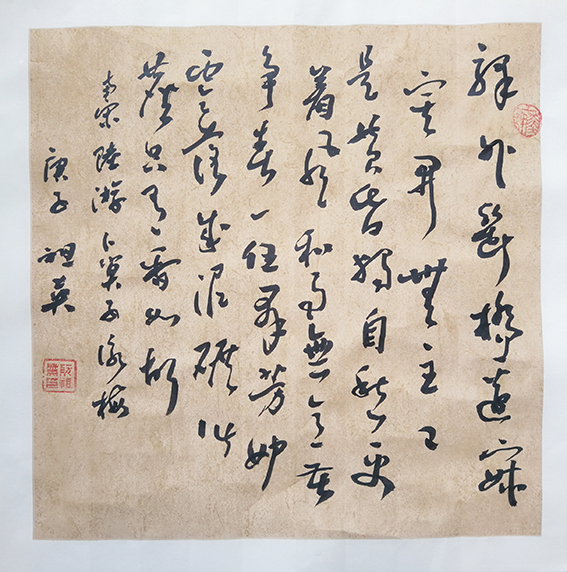 驛外斷橋邊寂
寞開無主已
是黄昏獨自愁更
着风和雨無意苦
争春一任群芳妒
零落成泥碾作
塵只有香如故
南宋陸游卜算子詠梅
庚子祖英